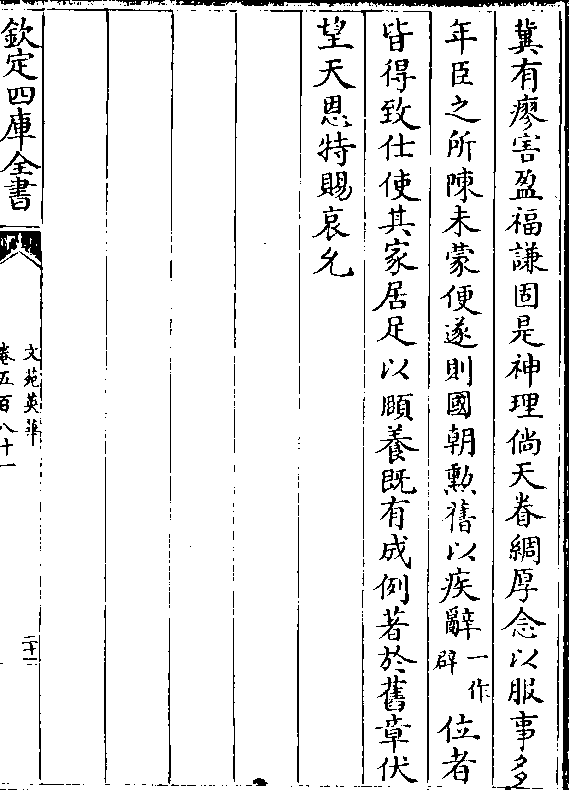 冀有瘳害盈福謙固是神理倘天眷綢厚念以服事多
年臣之所陳未蒙便遂則國朝勲舊以疾辭一作辟位者
皆得致仕使其家居足以頤養既有成例著於舊章伏
望天恩特賜哀允
欽定四庫全書
文苑英華
卷五百八十一
二十一